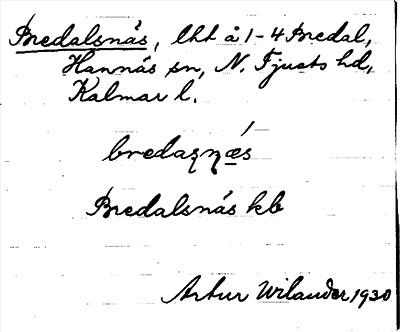 Bredalsnäs, lht å 1-4 Bredal,
Hannäs sn, N. Tjusts hd,
Kalmar l.
bredaʒɳǽs
Bredalsnäs kb
Artur Wilander 1930